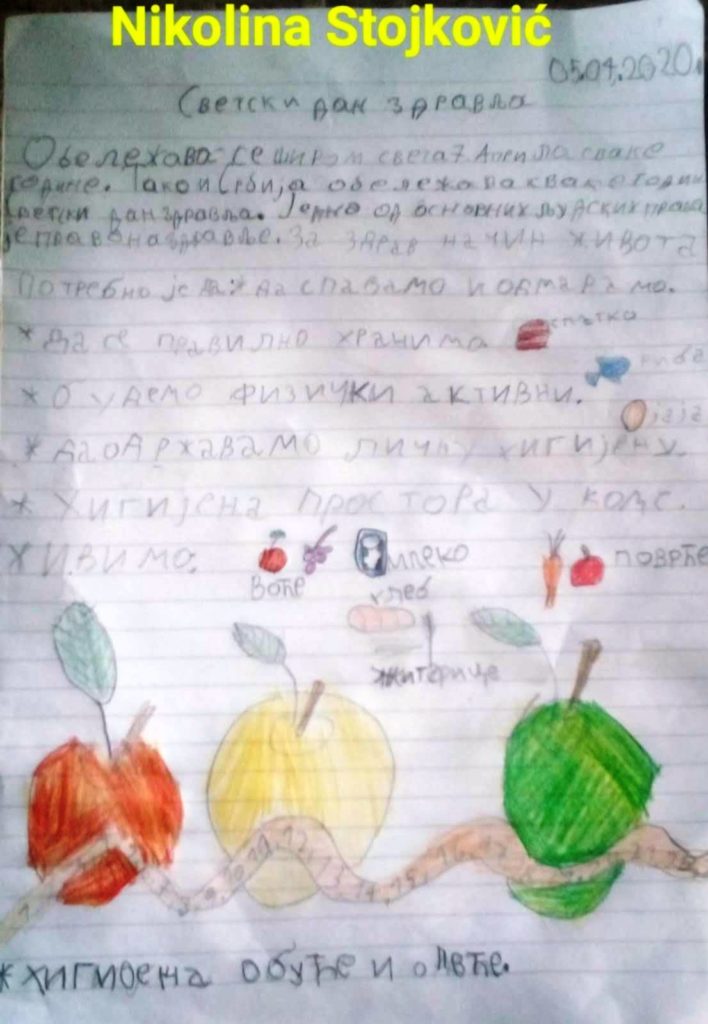 Nikolina Stojković
05.04.2020.
Светски дан здравља
Обележава се широм света 7 Априла сваке
године. Тако и Србија обележава сваке године
Светски дан здравља. Једно од основних људских права
је право на здравље. За здрав начин живота
Потребно је да: * Да спавамо и одмарамо.
* Да се правилно хранимо
* Будемо физички активни.
риба
јаја
* Да одржавамо личну хигијену.
* Хигијена простора у коме
живимо.
воће
млеко
хлеб
поврће
житерице
* хигиоена обуће и одеће.